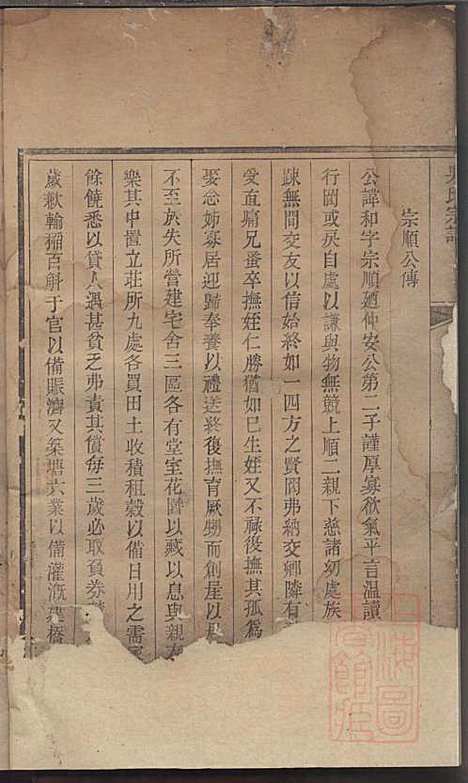 吳氏宗譜
宗順公傳
公諱和字宗順廼仲安公第二子謹厚寡欲氣平言溫讀
行閭或戾自處以謙與物無競上順二親下慈諸幼處族
踈無間交友以信始終如一四方之賢罔弗納交鄉隣有
受直痛兄蚤卒撫姪仁勝猶如己生姪又不祿後撫其孤為
娶念姊寡居迎歸奉養以禮送終復撫育厥甥而創屋以
不至於失所嘗建宅舍三區各有堂室花園以藏以息與親友
樂其中置立莊所九處各買田土收積租穀以備日用之需
餘饒悉以貸人遇甚貧乏弗責其償每三歲必取負券
歲歉輸稲百斛于官以備賑濟又築塘六業以備灌溉建橋